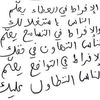 الإفراط في العطاء يعلّم
الناس استغلالك
والإفراط في التسامح يعلّم
الناس التهاون في حقك
والإفراط في التواضع يعلّم
الناس التطاول عليك